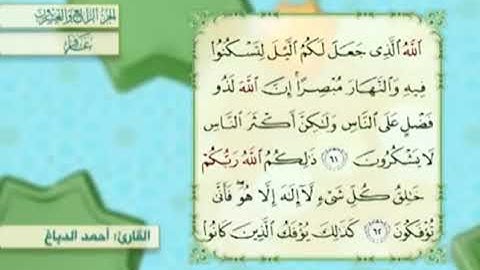 الجزء الرابع والعشرون
غافر
اللَّهُ الَّذِى جَعَلَ لَكُمُ الَّيْلَ لِتَسْكُنُوا
فِيهِ وَالنَّهَارَ مُبْصِرًا إِنَّ اللَّهَ لَذُو
فَضْلٍ عَلَى النَّاسِ وَلَٰكِنَّ أَكْثَرَ النَّاسِ
لَا يَشْكُرُونَ ٦١ ذَٰلِكُمُ اللَّهُ رَبُّكُمْ
خَٰلِقُ كُلِّ شَىْءٍ لَّا إِلَٰهَ إِلَّا هُوَ ۖ فَأَنَّىٰ
تُؤْفَكُونَ ٦٢ كَذَٰلِكَ يُؤْفَكُ الَّذِينَ كَانُوا
القارئ: أحمد الدباغ